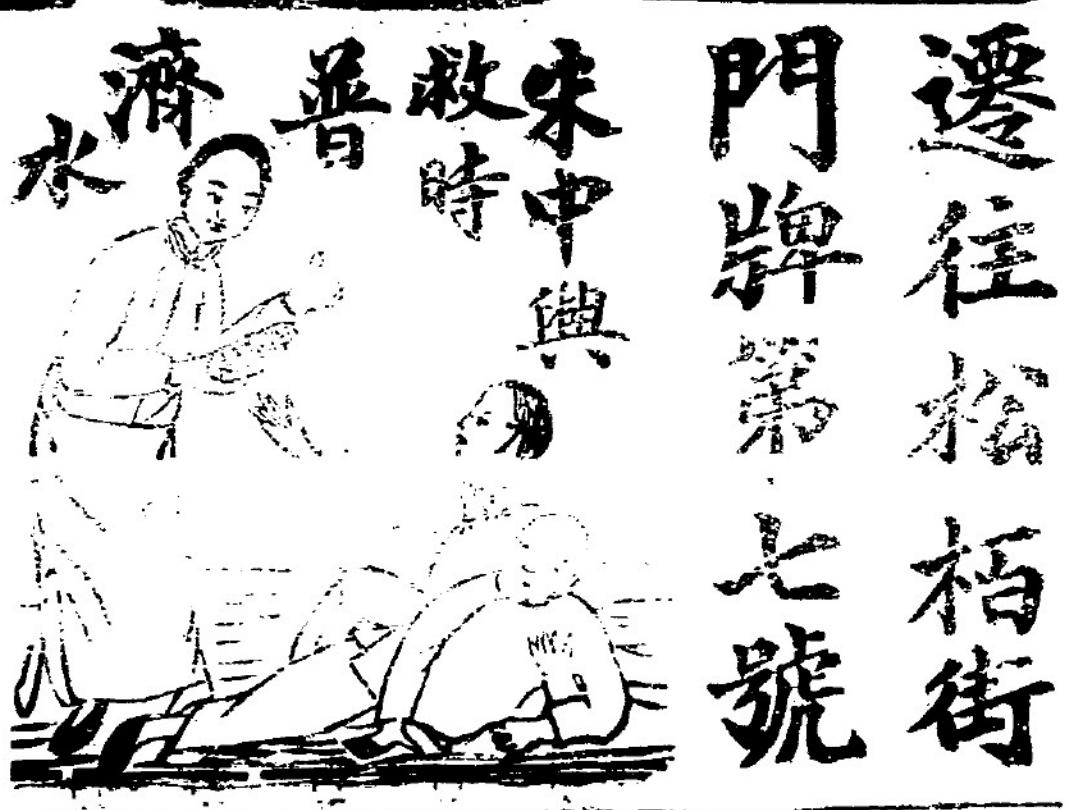 遷往松栢街
門牌第七號
朱中興
救時
普濟水